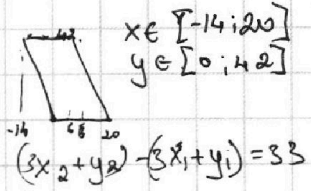 x∈[-14;20]
y∈[0;42]
42
-14 6 20
(3x₂+y₂)-(3x₁+y₁)=33